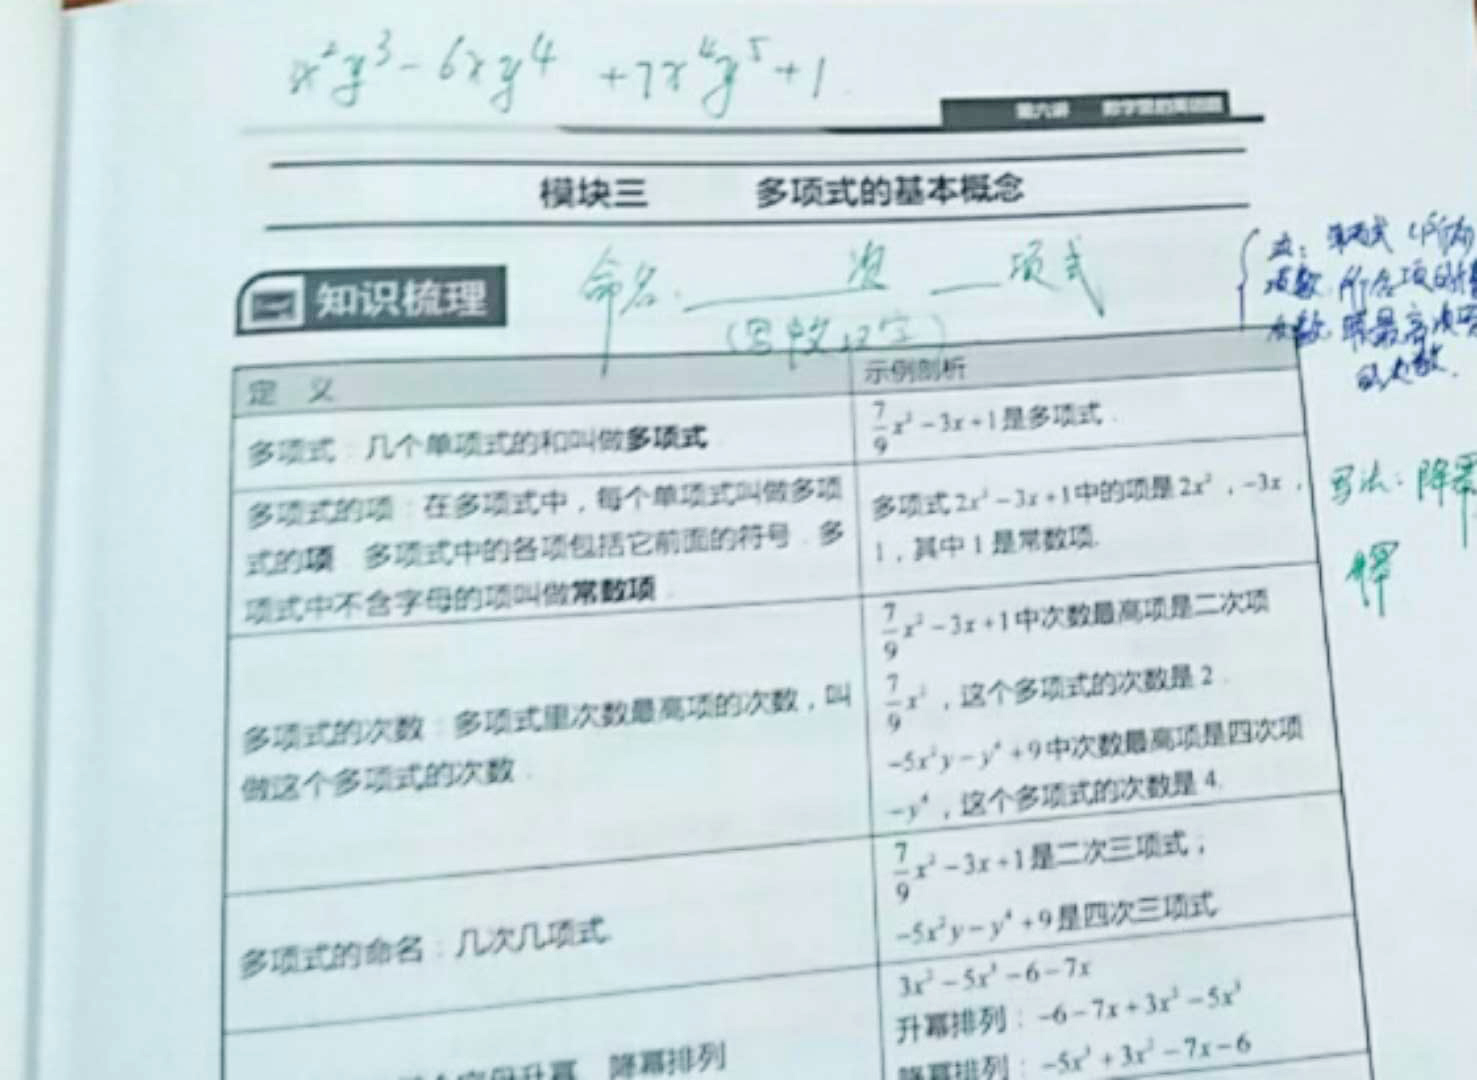 x²y³-6xy⁴ +7x⁴y⁵+1
第六讲
模块三 多项式的基本概念
命名. ____次 __项式
知识梳理
(写数汉字)
定 义
示例剖析
多项式:几个单项式的和叫做多项式
7/9x²-3x+1是多项式.
多项式的项:在多项式中,每个单项式叫做多项
式的项 多项式中的各项包括它前面的符号.多
项式中不含字母的项叫做常数项.
多项式2x²-3x+1中的项是2x²,-3x,
1,其中1是常数项.
多项式的次数:多项式里次数最高项的次数,叫
做这个多项式的次数.
7/9x²-3x+1中次数最高项是二次项
7/9x²,这个多项式的次数是2.
-5x²y-y⁴+9中次数最高项是四次项
-y⁴,这个多项式的次数是4.
多项式的命名:几次几项式.
7/9x²-3x+1是二次三项式;
-5x²y-y⁴+9是四次三项式.
字母升幂 降幂排列
3x²-5x³-6-7x
升幂排列:-6-7x+3x²-5x³
降幂排列:-5x³+3x²-7x-6
注:单项式
项数.所含项的
次数.取最高次项
的次数.
写法:降幂